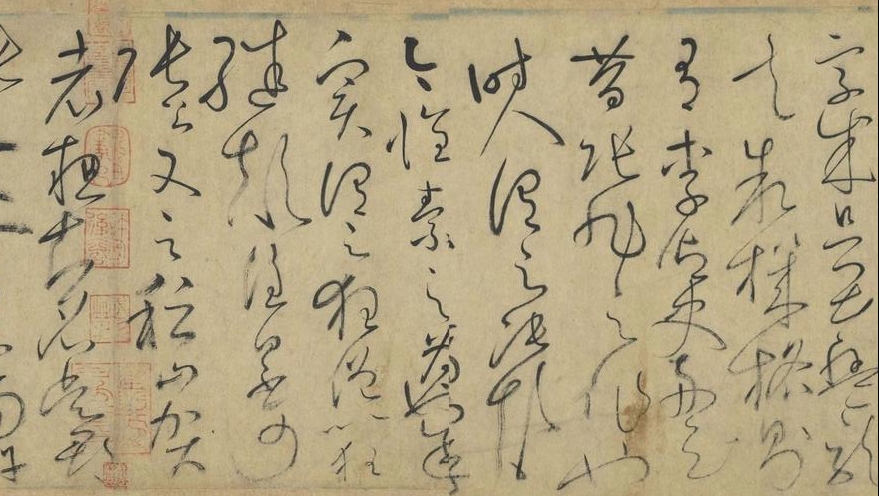 字成只畏盤龍
走敘機格則
有李御史舟云
昔張旭之作也
時人謂之張顛
今懷素之為也余
實謂之狂僧以狂
繼顛誰曰不可
張公又云稽山賀
老粗知名吳郡